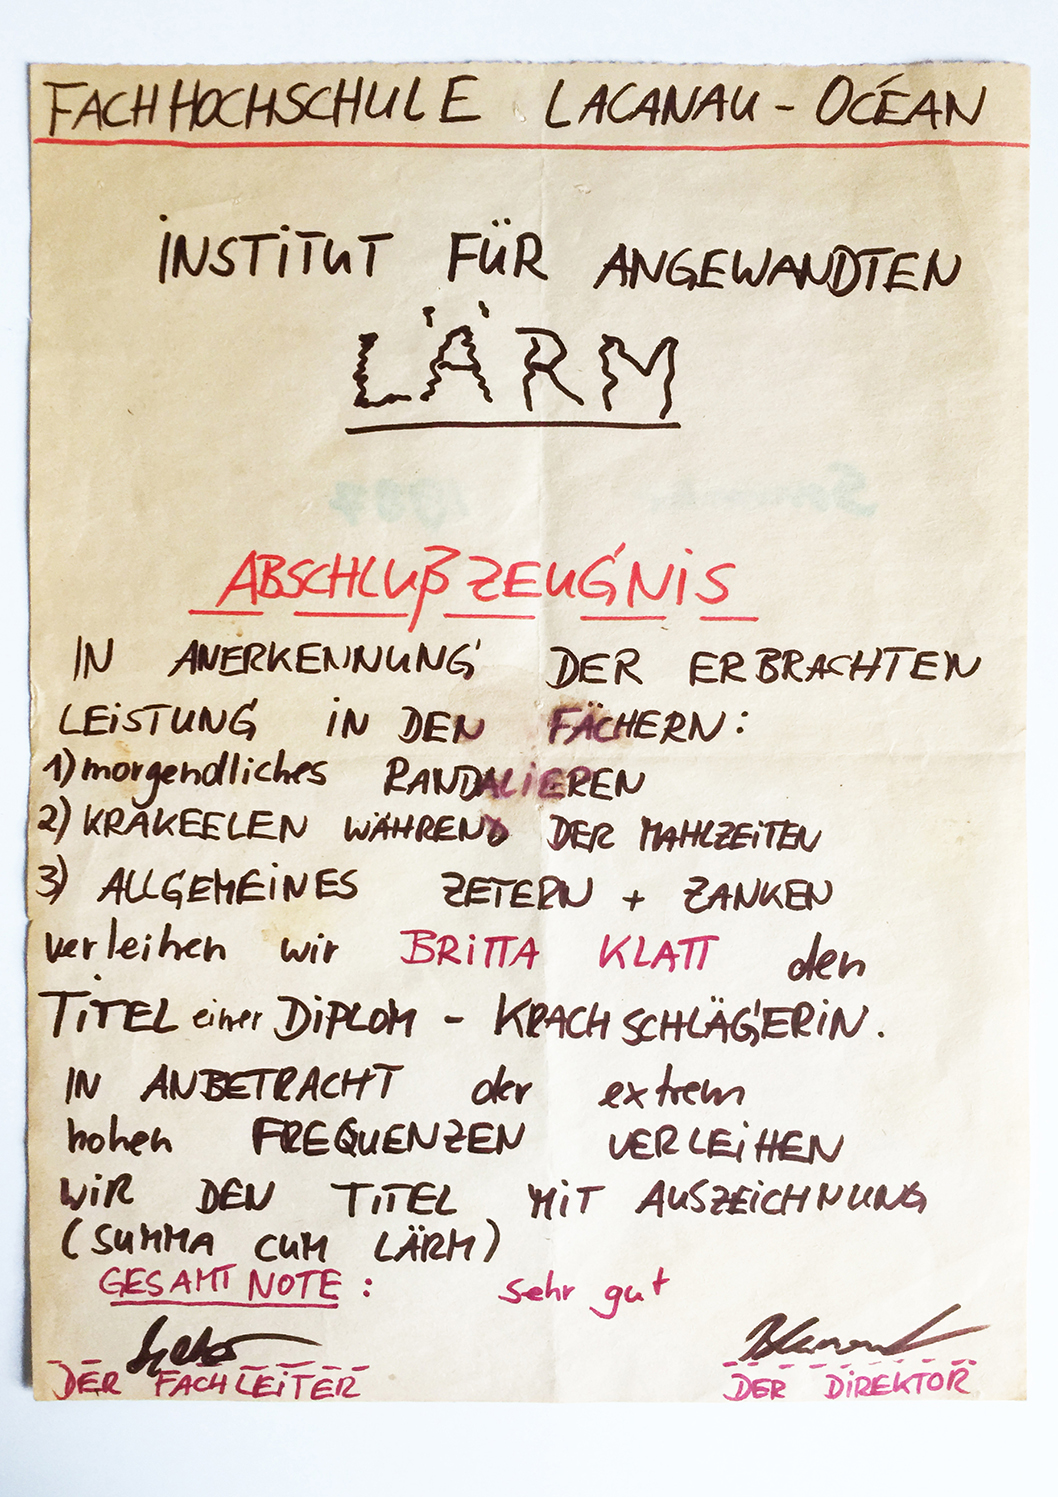 FACHHOCHSCHULE LACANAU - OCÉAN
INSTITUT FÜR ANGEWANDTEN
LÄRM
ABSCHLUßZEUGNIS
IN ANERKENNUNG DER ERBRACHTEN
LEISTUNG IN DEN FÄCHERN:
1) morgendliches RANDALIEREN
2) KRAKEELEN WÄHREND DER MAHLZEITEN
3) ALLGEMEINES ZETERN + ZANKEN
verleihen wir BRITTA KLATT den
TITEL einer DIPLOM - KRACHSCHLÄGERIN.
IN ANBETRACHT der extrem
hohen FREQUENZEN VERLEIHEN
WIR DEN TITEL MIT AUSZEICHNUNG
(SUMMA CUM LÄRM)
GESAMTNOTE: sehr gut
DER FACHLEITER DER DIREKTOR